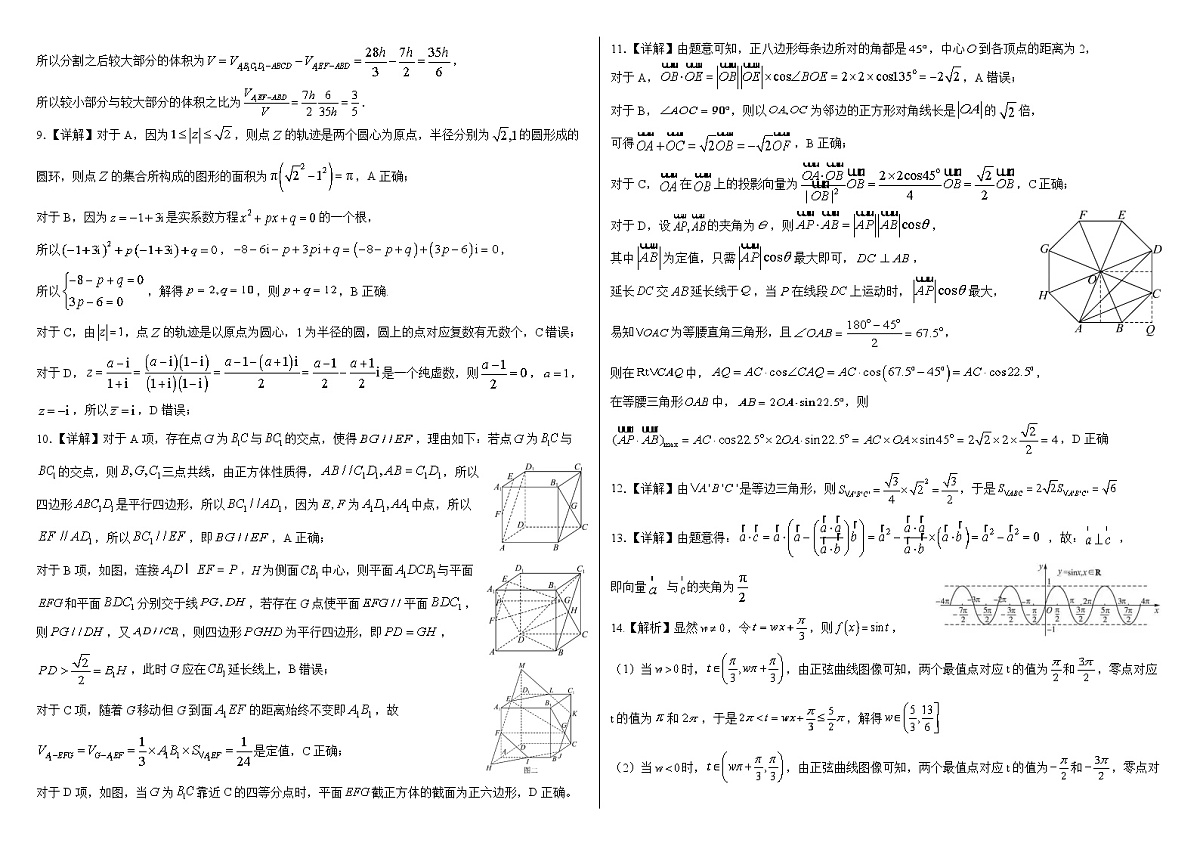 所以分割之后较大部分的体积为V=V_{A₁B₁C₁D₁−ABCD}−V_{A₁EF−ABD}=28h/3−7h/2=35h/6，
所以较小部分与较大部分的体积之比为V_{A₁EF−ABD}/V=7h/2·6/35h=3/5．
9.【详解】对于A，因为1≤|z|≤√2，则点Z的轨迹是两个圆心为原点，半径分别为√2,1的圆形成的
圆环，则点Z的集合所构成的图形的面积为π(√2²−1²)=π，A正确；
对于B，因为z=−1+3i是实系数方程x²+px+q=0的一个根，
所以(−1+3i)²+p(−1+3i)+q=0，−8−6i−p+3pi+q=(−8−p+q)+(3p−6)i=0，
所以{−8−p+q=0
3p−6=0，解得p=2,q=10，则p+q=12，B正确.
对于C，由|z|=1，点Z的轨迹是以原点为圆心，1为半径的圆，圆上的点对应复数有无数个，C错误；
对于D，z=(a−i)/(1+i)=(a−i)(1−i)/(1+i)(1−i)=(a−1−(a+1)i)/2=(a−1)/2−(a+1)/2 i是一个纯虚数，则(a−1)/2=0，a=1，
z=−i，所以z̄=i，D错误；
10.【详解】对于A项，存在点G为B₁C与BC₁的交点，使得BG//EF，理由如下：若点G为B₁C与
BC₁的交点，则B,G,C₁三点共线，由正方体性质得，AB//C₁D₁,AB=C₁D₁，所以
四边形ABC₁D₁是平行四边形，所以BC₁//AD₁，因为E,F为A₁D₁,AA₁中点，所以
EF//AD₁，所以BC₁//EF，即BG//EF，A正确；
对于B项，如图，连接A₁D I EF=P，H为侧面CB₁中心，则平面A₁DCB₁与平面
EFG和平面BDC₁分别交于线PG,DH，若存在G点使平面EFG//平面BDC₁，
则PG//DH，又A₁D//CB₁，则四边形PGHD为平行四边形，即PD=GH，
PD>√2/2=B₁H，此时G应在CB₁延长线上，B错误；
对于C项，随着G移动但G到面A₁EF的距离始终不变即A₁B₁，故
V_{A₁−EFG}=V_{G−A₁EF}=1/3×A₁B₁×S_{VA₁EF}=1/24是定值，C正确；
对于D项，如图，当G为B₁C靠近C的四等分点时，平面EFG截正方体的截面为正六边形，D正确。
图二
11.【详解】由题意可知，正八边形每条边所对的角都是45°，中心O到各顶点的距离为2，
对于A，OB·OE=|OB||OE|×cos∠BOE=2×2×cos135°=−2√2，A错误；
对于B，∠AOC=90°，则以OA,OC为邻边的正方形对角线长是|OA|的√2倍，
可得OA+OC=√2OB=−√2OF，B正确；
对于C，OA在OB上的投影向量为OA·OB/|OB|² OB=2×2cos45°/4 OB=√2/2 OB，C正确；
对于D，设AP,AB的夹角为θ，则AP·AB=|AP||AB|cosθ，
其中|AB|为定值，只需|AP|cosθ最大即可，DC⊥AB，
延长DC交AB延长线于Q，当P在线段DC上运动时，|AP|cosθ最大，
易知VOAC为等腰直角三角形，且∠OAB=(180°−45°)/2=67.5°，
则在RtVCAQ中，AQ=AC·cos∠CAQ=AC·cos(67.5°−45°)=AC·cos22.5°，
在等腰三角形OAB中，AB=2OA·sin22.5°，则
(AP·AB)max=AC·cos22.5°×2OA·sin22.5°=AC×OA×sin45°=2√2×2×√2/2=4，D正确
12.【详解】由VA'B'C'是等边三角形，则S_{VA'B'C'}=√3/4×√2²=√3/2，于是S_{VABC}=2√2S_{VA'B'C'}=√6
13.【详解】由题意得：a·c=a·(a−(a·a/a·b)b)=a²−a·a/a·b×(a·b)=a²−a²=0，故：a⊥c，
即向量a与c的夹角为π/2
y=sinx,x∈R
14.【解析】显然w≠0，令t=wx+π/3，则f(x)=sint，
（1）当w>0时，t∈(π/3,wπ+π/3)，由正弦曲线图像可知，两个最值点对应t的值为π/2和3π/2，零点对应
t的值为π和2π，于是2π<t=wx+π/3≤5/2π，解得w∈(5/3,13/6]
（2）当w<0时，t∈(wπ+π/3,π/3)，由正弦曲线图像可知，两个最值点对应t的值为−π/2和−3π/2，零点对